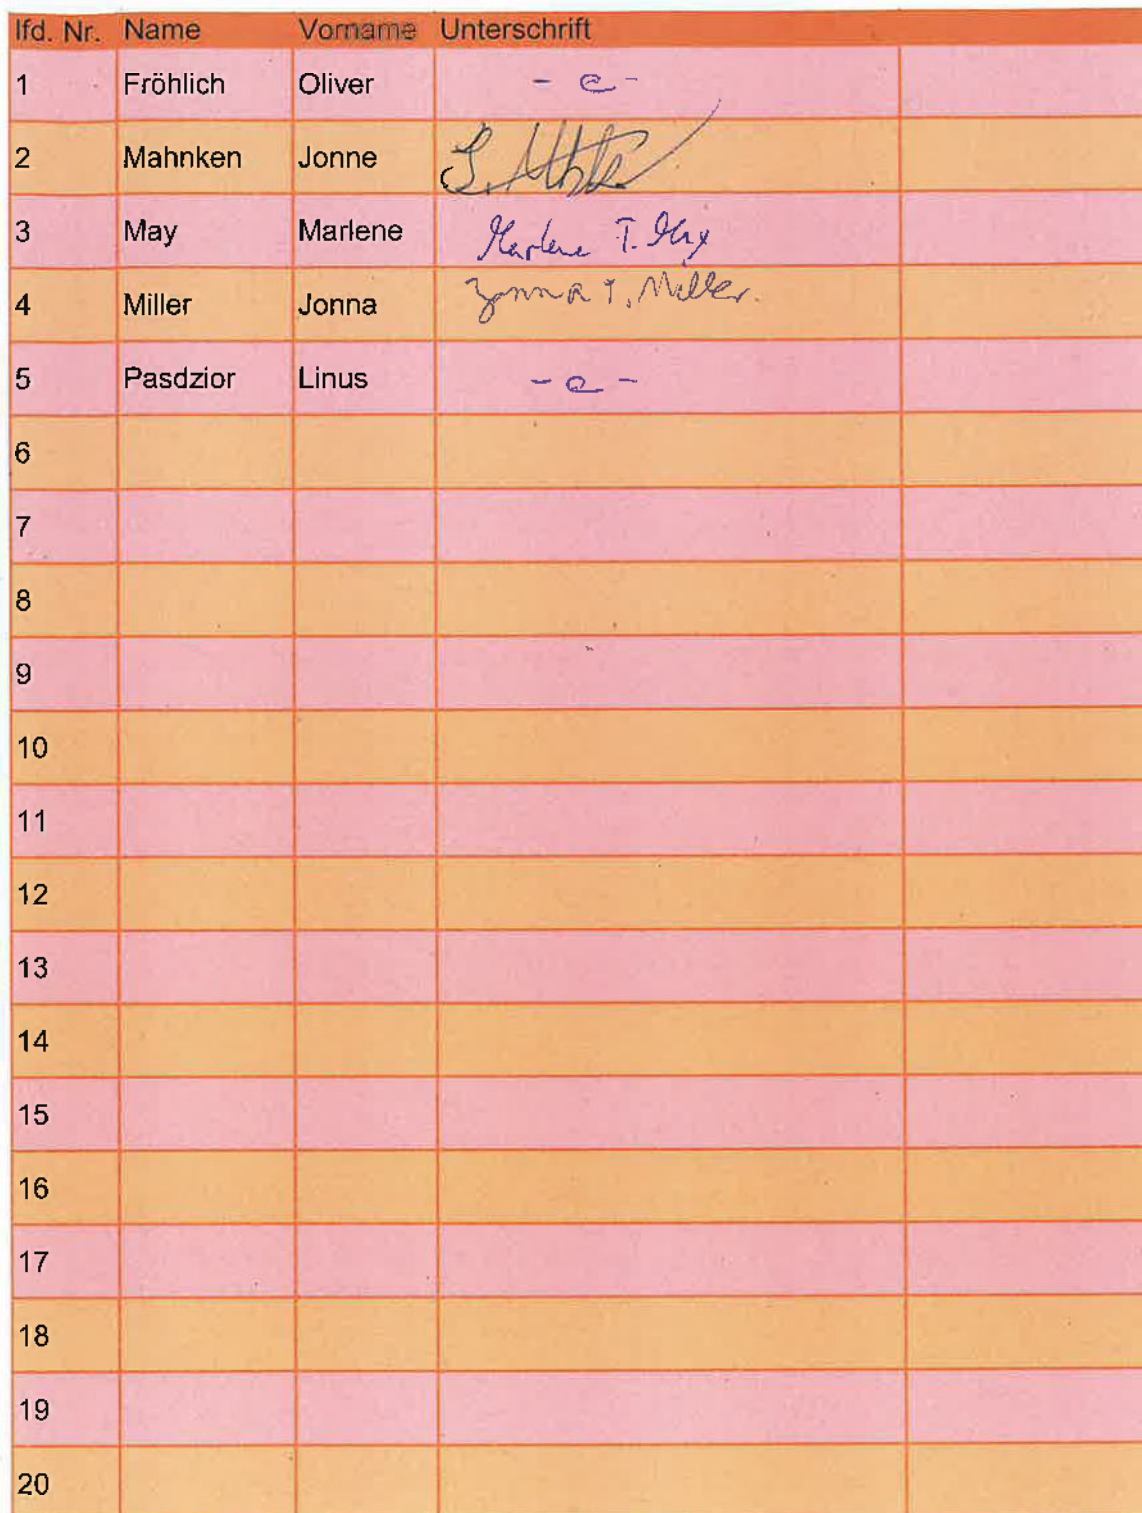 lfd. Nr. Name Vorname Unterschrift
1 Fröhlich Oliver - e -
2 Mahnken Jonne
3 May Marlene Marlene T. May
4 Miller Jonna Jonna T. Miller.
5 Pasdzior Linus - e -
6
7
8
9
10
11
12
13
14
15
16
17
18
19
20